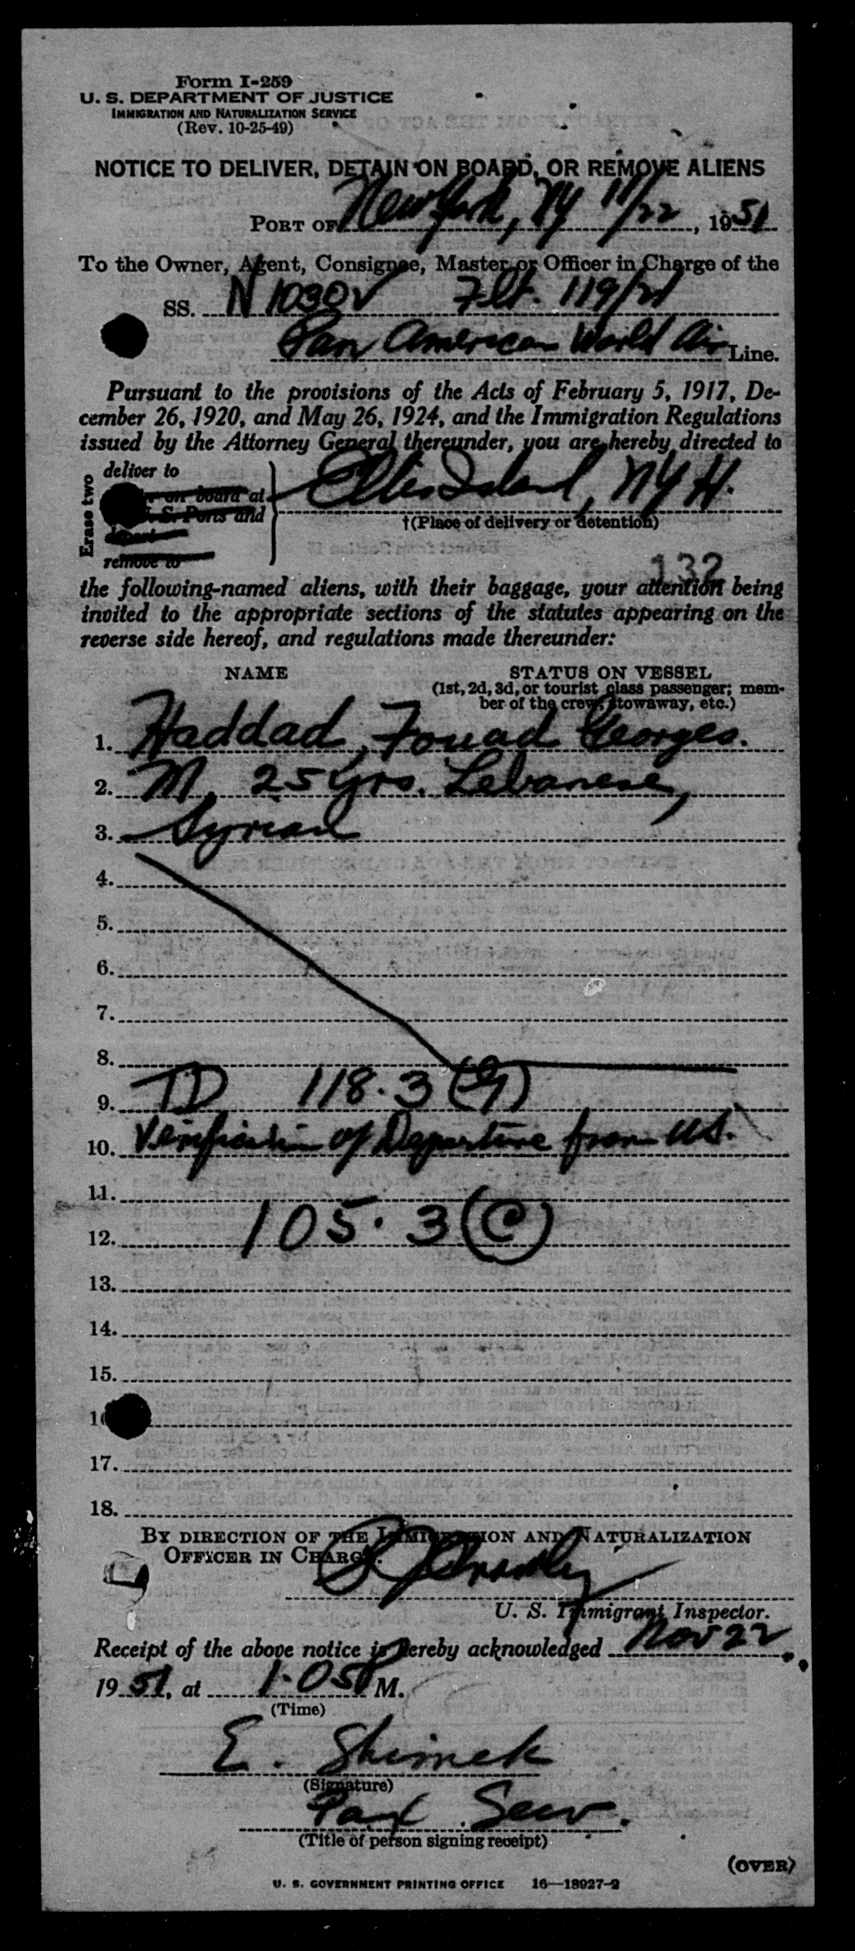 Form I-259
U. S. DEPARTMENT OF JUSTICE
IMMIGRATION AND NATURALIZATION SERVICE
(Rev. 10-25-49)
NOTICE TO DELIVER, DETAIN ON BOARD, OR REMOVE ALIENS
PORT OF New York, NY 11/22, 1951
To the Owner, Agent, Consignee, Master or Officer in Charge of the
SS. N1030V Flt. 119/21
Pan American World Air Line.
Pursuant to the provisions of the Acts of February 5, 1917, De-
cember 26, 1920, and May 26, 1924, and the Immigration Regulations
issued by the Attorney General thereunder, you are hereby directed to
Erase two
deliver to
on board at
U. S. Ports and
depart
remove to
Ellis Island, NYH.
†(Place of delivery or detention)
132
the following-named aliens, with their baggage, your attention being
invited to the appropriate sections of the statutes appearing on the
reverse side hereof, and regulations made thereunder:
NAME STATUS ON VESSEL
(1st, 2d, 3d, or tourist class passenger; mem-
ber of the crew, stowaway, etc.)
1. Haddad, Fouad Georges.
2. M, 25 yrs. Lebanese,
3. Syrian
4.
5.
6.
7.
8.
9. TD 118.3 (G)
10. Verification of Departure from US.
11.
12. 105.3 (C)
13.
14.
15.
16
17.
18.
BY DIRECTION OF THE IMMIGRATION AND NATURALIZATION
OFFICER IN CHARGE.
U. S. Immigrant Inspector.
Receipt of the above notice is hereby acknowledged Nov 22,
1951, at 1:05 P M.
(Time)
E. Shimek
(Signature)
Pax Serv.
(Title of person signing receipt)
(OVER)
U. S. GOVERNMENT PRINTING OFFICE 16—18927-2